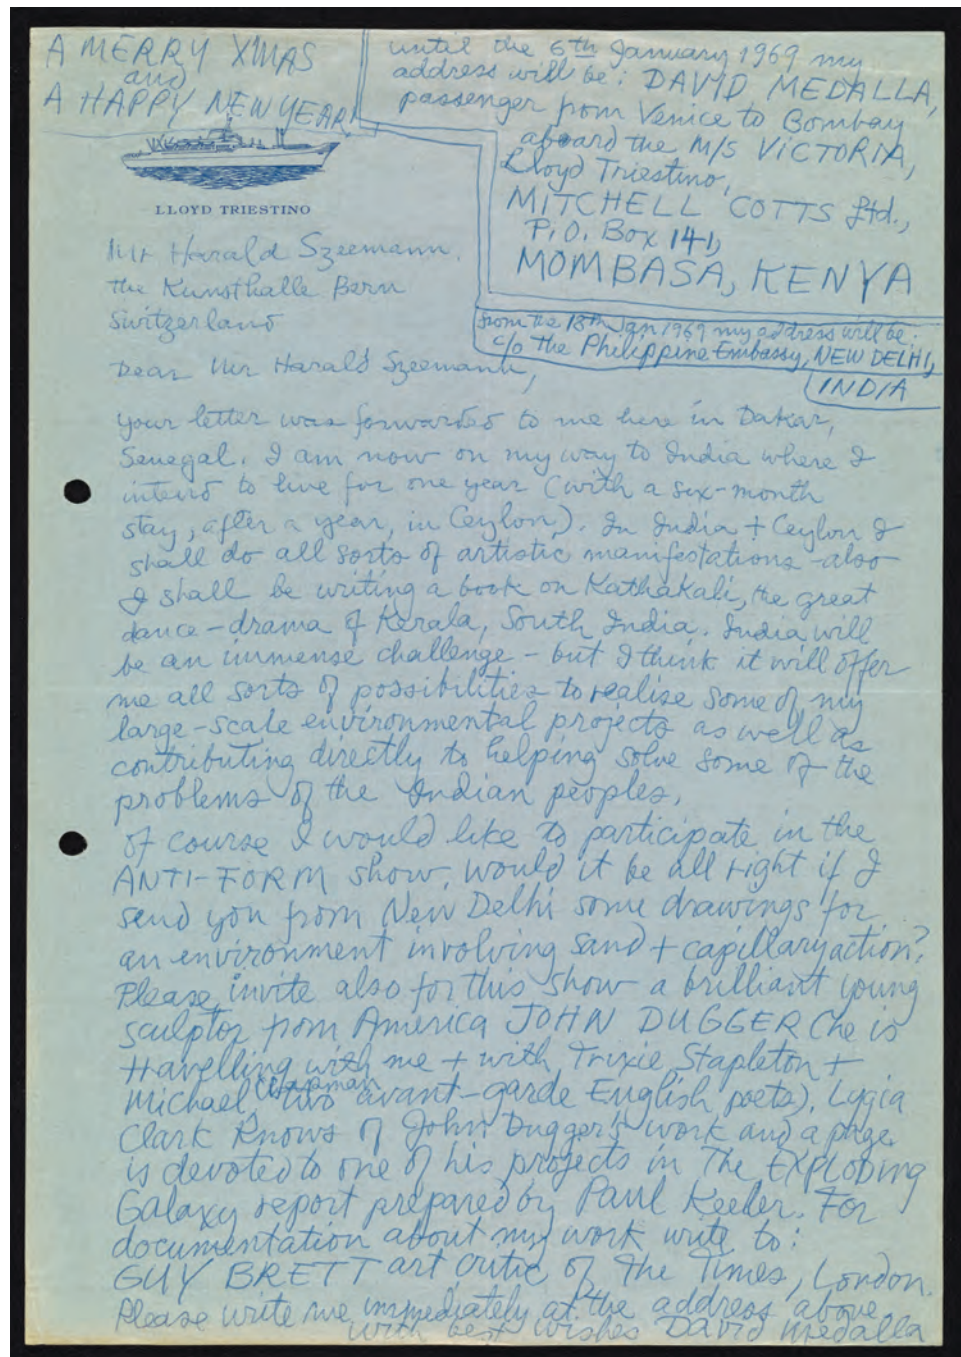 A MERRY XMAS
and
A HAPPY NEW YEAR!
until the 6th January 1969 my
address will be: DAVID MEDALLA,
passenger from Venice to Bombay
aboard the M/S VICTORIA,
Lloyd Triestino,
MITCHELL COTTS Ltd.,
P.O. Box 141,
MOMBASA, KENYA
from the 18th Jan 1969 my address will be:
c/o The Philippine Embassy, NEW DELHI,
INDIA
LLOYD TRIESTINO
Mr Harald Szeemann.
the Kunsthalle Bern
Switzerland
Dear Mr Harald Szeemann,
your letter was forwarded to me here in Dakar,
Senegal. I am now on my way to India where I
intend to live for one year (with a six-month
stay, after a year, in Ceylon). In India + Ceylon I
shall do all sorts of artistic manifestations - also
I shall be writing a book on Kathakali, the great
dance-drama of Kerala, South India. India will
be an immense challenge - but I think it will offer
me all sorts of possibilities to realise some of my
large-scale environmental projects as well as
contributing directly to helping solve some of the
problems of the Indian peoples.
of course I would like to participate in the
ANTI-FORM show. would it be all right if I
send you from New Delhi some drawings for
an environment involving sand + capillary action?
Please invite also for this show a brilliant young
sculptor from America JOHN DUGGER (he is
travelling with me + with Trixie Stapleton +
Michael Chapman two avant-garde English poets). Lygia
Clark knows of John Dugger's work and a page
is devoted to one of his projects in The EXPLODING
Galaxy report prepared by Paul Keeler. For
documentation about my work write to:
GUY BRETT art critic of The Times, London.
Please write me immediately at the address above
with best wishes David Medalla